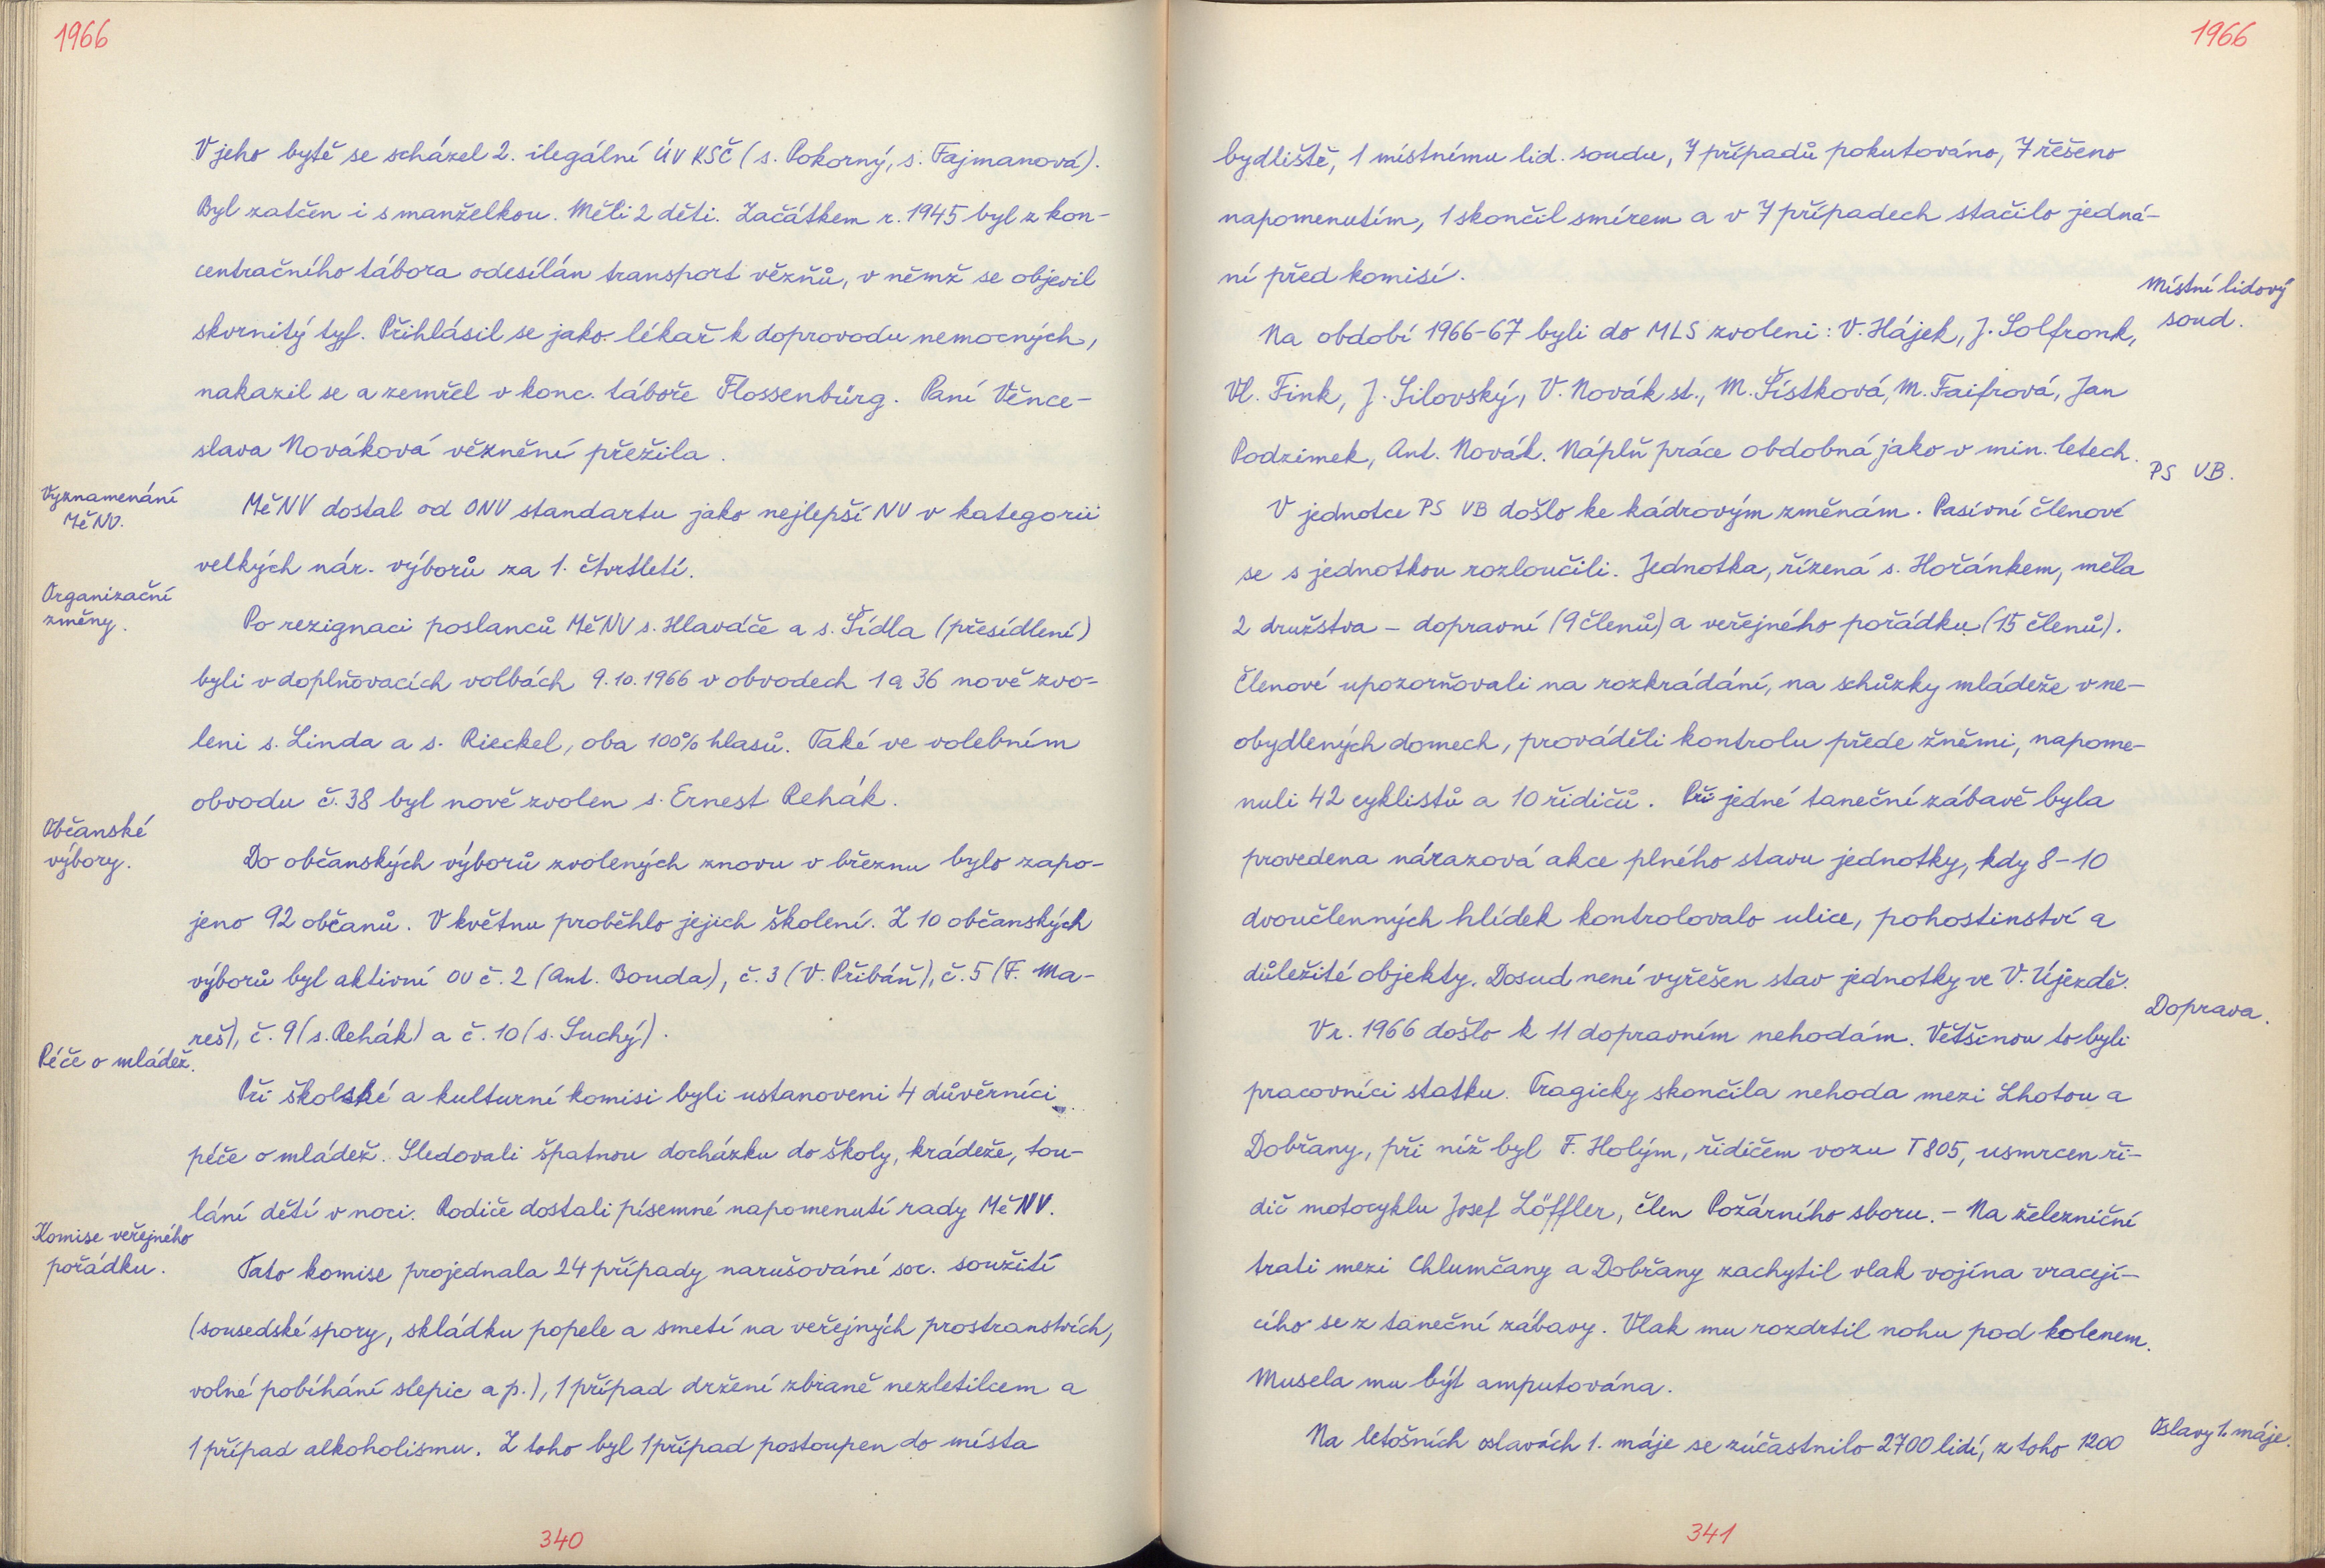 1966
V jeho bytě se scházel 2. ilegální ÚV KSČ (s. Pokorný, s. Fajmanová).
Byl zatčen i s manželkou. Měli 2 děti. Začátkem r. 1945 byl z kon-
centračního tábora odesílán transport vězňů, v němž se objevil
skvrnitý tyf. Přihlásil se jako lékař k doprovodu nemocných,
nakazil se a zemřel v konc. táboře Flossenbürg. Paní Věnce-
slava Nováková věznění přežila.
Vyznamenání
MěNV.
MěNV dostal od ONV standartu jako nejlepší NV v kategorii
velkých nár. výborů za 1. čtvrtletí.
Organizační
změny.
Po rezignaci poslanců MěNV s. Hlaváče a s. Šídla (přesídlení)
byli v doplňovacích volbách 9.10.1966 v obvodech 1 a 36 nově zvo-
leni s. Linda a s. Rieckel, oba 100% hlasů. Také ve volebním
obvodu č. 38 byl nově zvolen s. Ernest Rehák.
Občanské
výbory.
Do občanských výborů zvolených znovu v březnu bylo zapo-
jeno 92 občanů. V květnu proběhlo jejich školení. Z 10 občanských
výborů byl aktivní OV č. 2 (Ant. Bouda), č. 3 (V. Přibáň), č. 5 (F. Ma-
reš), č. 9 (s. Rehák) a č. 10 (s. Suchý).
Péče o mládež.
Při školské a kulturní komisi byli ustanoveni 4 důvěrníci
péče o mládež. Sledovali špatnou docházku do školy, krádeže, tou-
lání dětí v noci. Rodiče dostali písemné napomenutí rady MěNV.
Komise veřejného
pořádku.
Tato komise projednala 24 případy narušování soc. soužití
(sousedské spory, skládku popele a smetí na veřejných prostranstvích,
volné pobíhání slepic a p.), 1 případ držení zbraně nezletilcem a
1 případ alkoholismu. Z toho byl 1 případ postoupen do místa
340
1966
bydliště, 1 místnímu lid. soudu, 7 případů pokutováno, 7 řešeno
napomenutím, 1 skončil smírem a v 7 případech stačilo jedná-
ní před komisí.
Místní lidový
soud.
Na období 1966-67 byli do MLS zvoleni: V. Hájek, J. Solfronk,
Vl. Fink, J. Silovský, V. Novák st., M. Šístková, M. Faifrová, Jan
Podzimek, Ant. Novák. Náplň práce obdobná jako v min. letech.
PS VB.
V jednotce PS VB došlo ke kádrovým změnám. Pasívní členové
se s jednotkou rozloučili. Jednotka, řízená s. Hořánkem, měla
2 družstva - dopravní (9 členů) a veřejného pořádku (15 členů).
Členové upozorňovali na rozkrádání, na schůzky mládeže v ne-
obydlených domech, prováděli kontrolu přede žněmi, napome-
nuli 42 cyklistů a 10 řidičů. Při jedné taneční zábavě byla
provedena nárazová akce plného stavu jednotky, kdy 8-10
dvoučlenných hlídek kontrolovalo ulice, pohostinství a
důležité objekty. Dosud není vyřešen stav jednotky ve V. Újezdě.
Doprava.
V r. 1966 došlo k 11 dopravním nehodám. Většinou to byli
pracovníci statku. Tragicky skončila nehoda mezi Lhotou a
Dobřany, při níž byl F. Holým, řidičem vozu T 805, usmrcen ři-
dič motocyklu Josef Löffler, člen Požárního sboru. - Na železniční
trati mezi Chlumčany a Dobřany zachytil vlak vojína vracejí-
cího se z taneční zábavy. Vlak mu rozdrtil nohu pod kolenem.
Musela mu být amputována.
Oslavy 1. máje.
Na letošních oslavách 1. máje se zúčastnilo 2700 lidí, z toho 1200
341